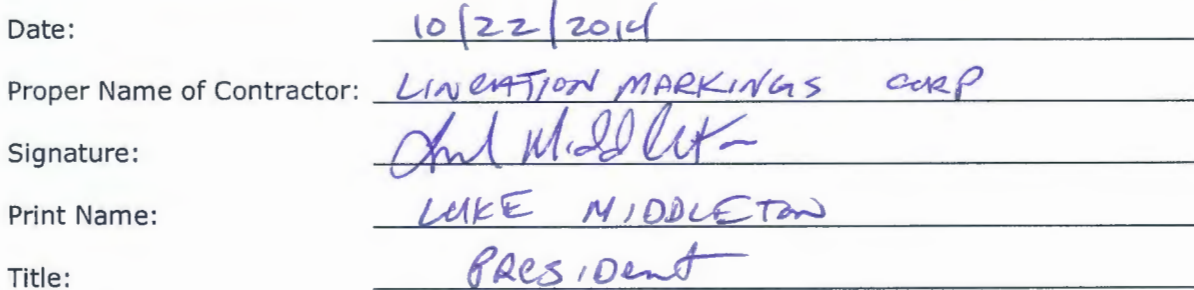 Date: 10/22/2014
Proper Name of Contractor: LINEATION MARKINGS CORP
Signature: Luke Middleton
Print Name: LUKE MIDDLETON
Title: PRESIDENT